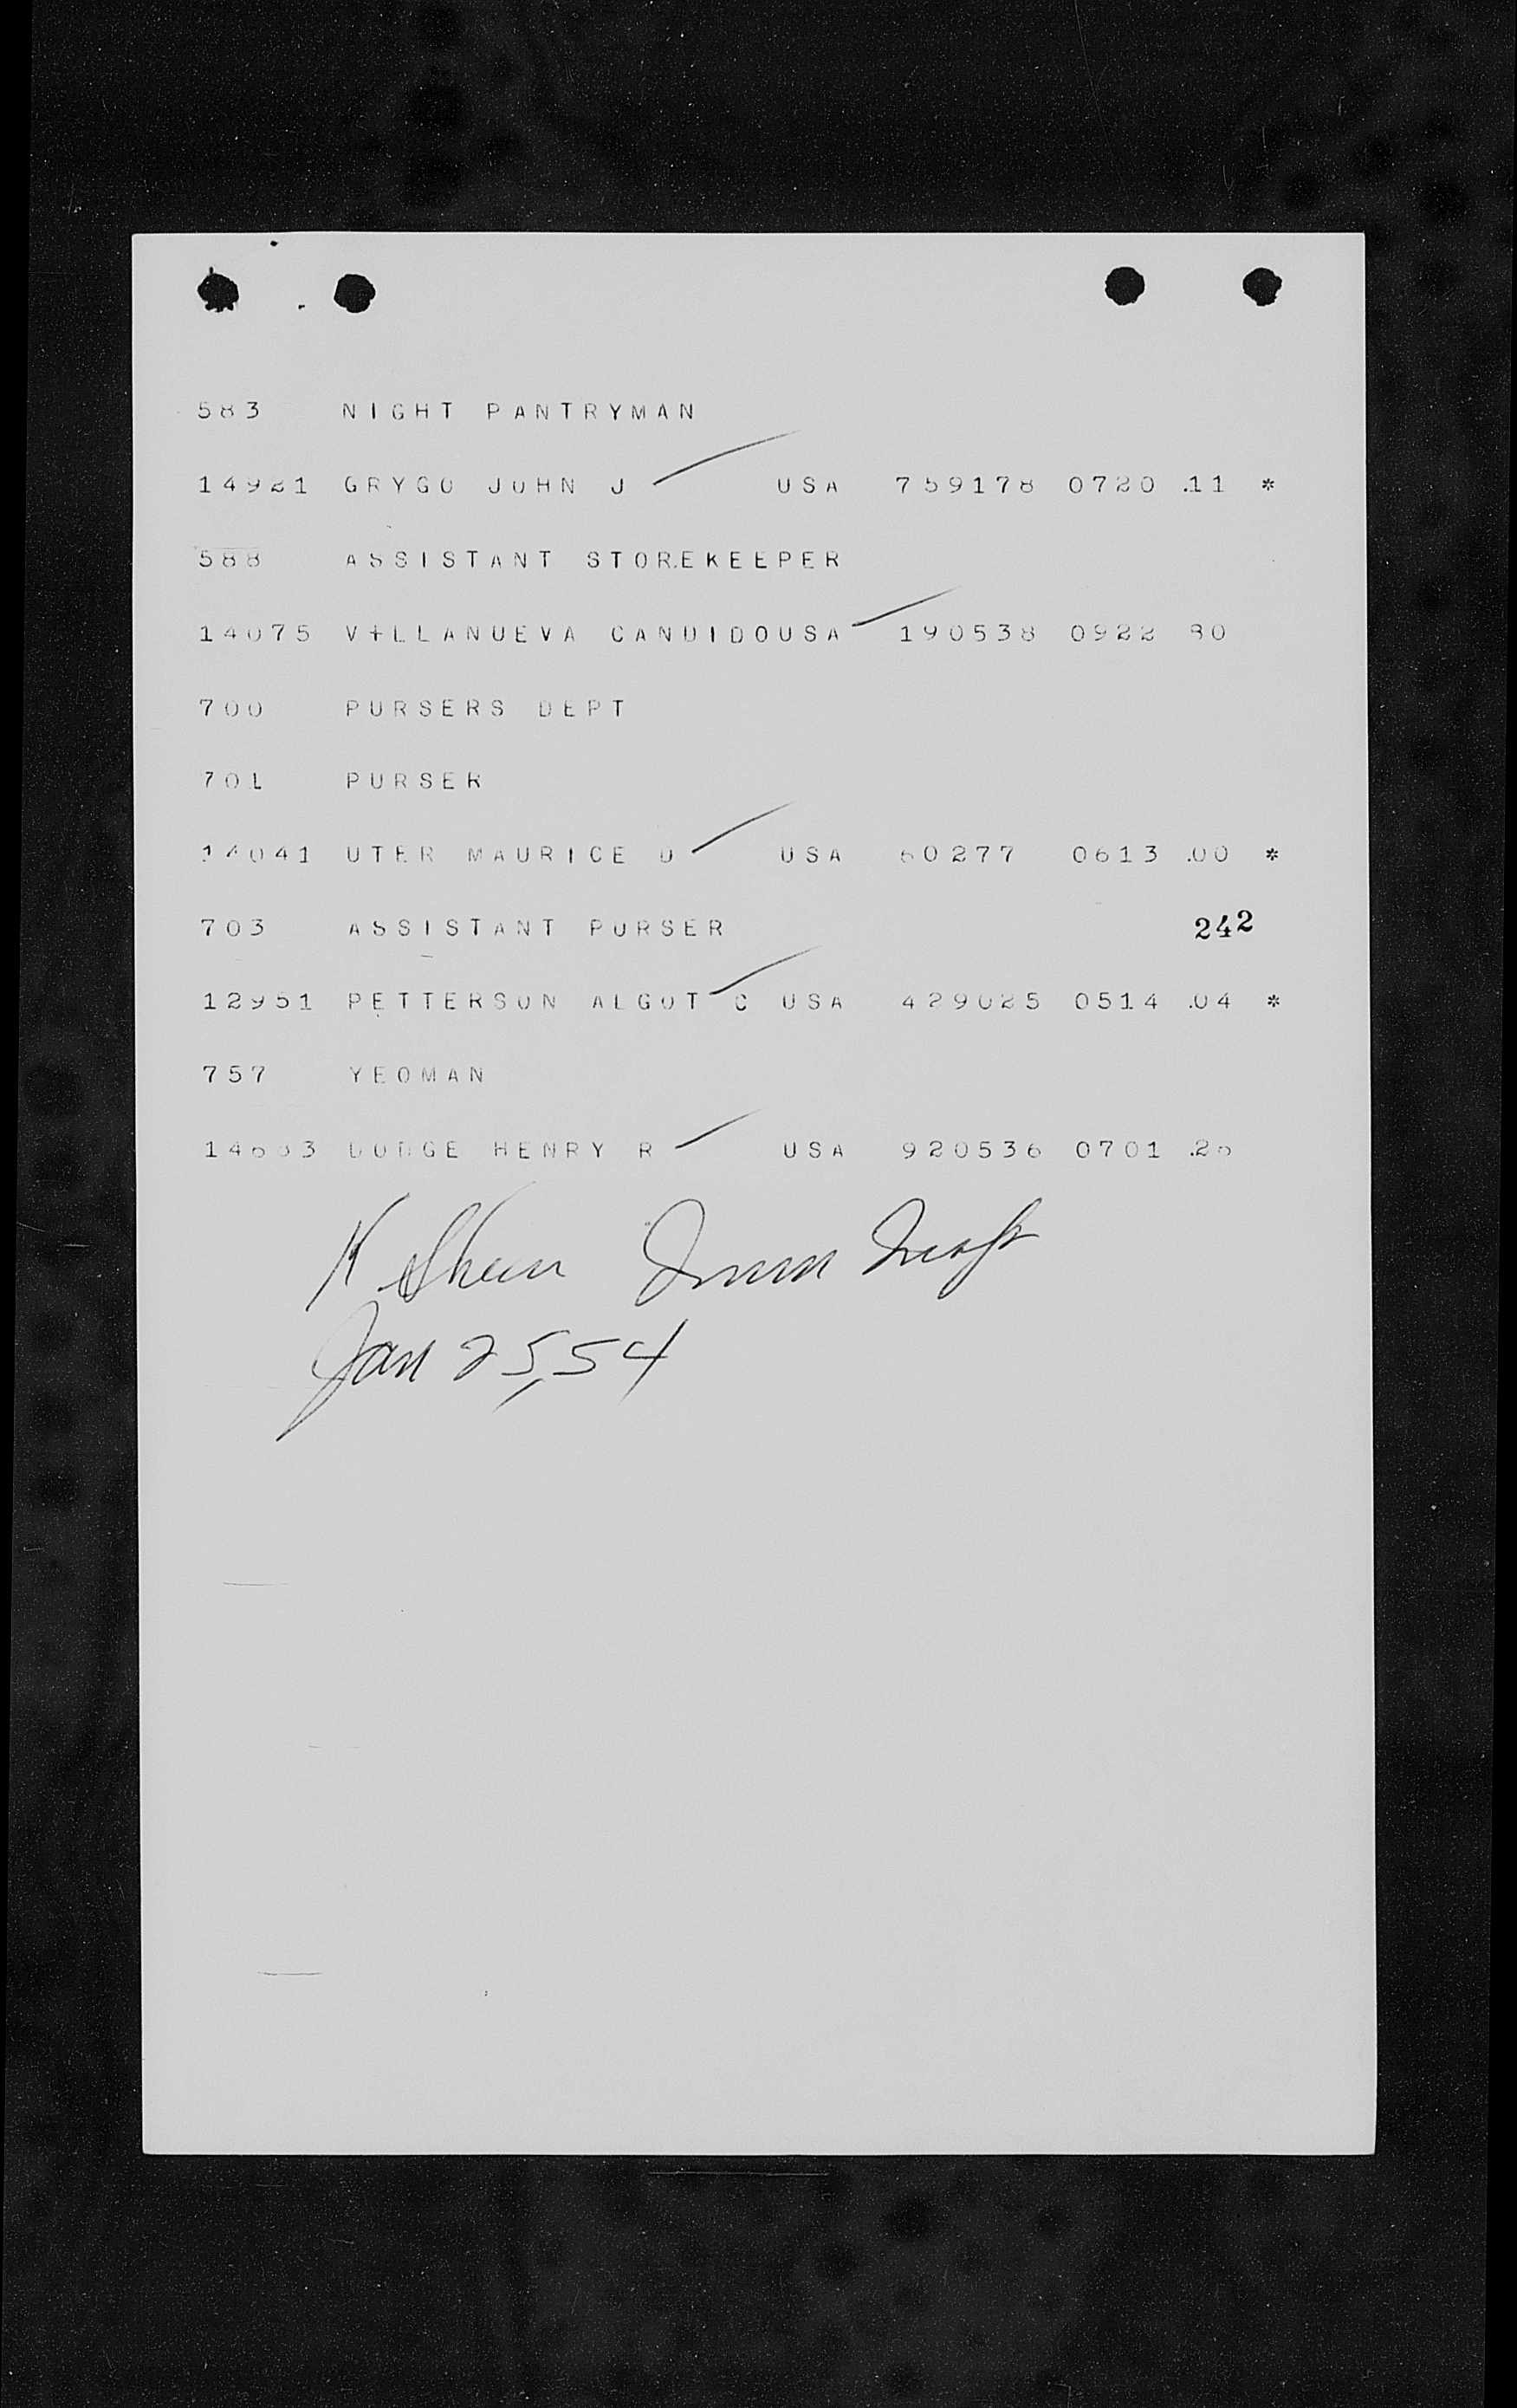 583 NIGHT PANTRYMAN
14921 GRYGO JOHN J USA 759178 0720 .11 *
588 ASSISTANT STOREKEEPER
14075 VILLANUEVA CANDIDOUSA 190538 0922 80
700 PURSERS DEPT
701 PURSER
14041 UTER MAURICE D USA 60277 0613 .00 *
703 ASSISTANT PURSER 242
12951 PETTERSON ALGOT C USA 429025 0514 .04 *
757 YEOMAN
DODGE HENRY R USA 920536 0701
Jan 25, 54